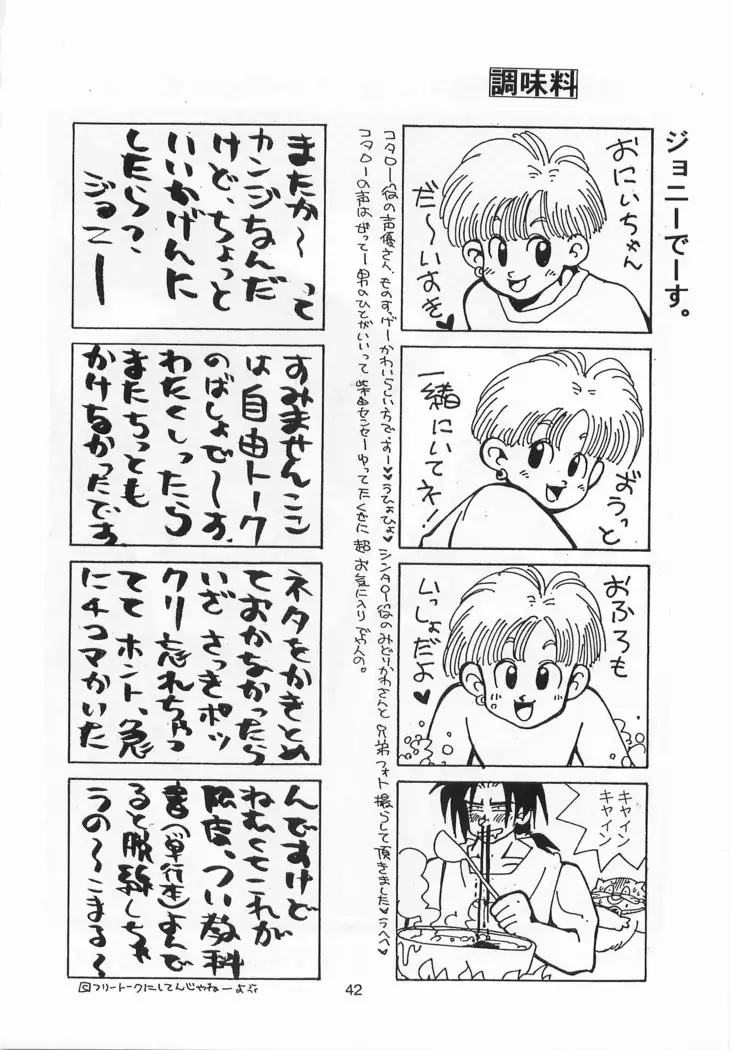 調味料
ジョニーでーす。
おにいちゃん
だ〜いすき♥
ずうっと
一緒にいてネ!
おふろも
いっしょだよ♥
キャイン
キャイン
コタロー役の声優さん、ものすっげーかわいらしい方ですー♥うひょひょ♥シンタロー役のみどりかわさんと兄弟フォト撮らして頂きました♥うへへ♥
コタローの声はぜってー男のひとがいいって柴田センセーゆってたくせに超お気に入りやんの。
またか〜って
カンジなんだ
けど、ちょっと
いいかげんに
したら?
ジョニー
すみませんここ
は自由トーク
のばしょで〜す。
わたくしったら
またちっとも
かけなかったです
ネタをかきとめ
ておかなかったら
いざさっきポッ
クリ忘れちゃっ
てて ホント、急
に4コマかいた
んですけど
ねむくてこれが
限度、つい教科
書(単行本)よんで
ると脱線しちゃ
うの〜こまる〜
フリートークにしてんじゃねーよ
42